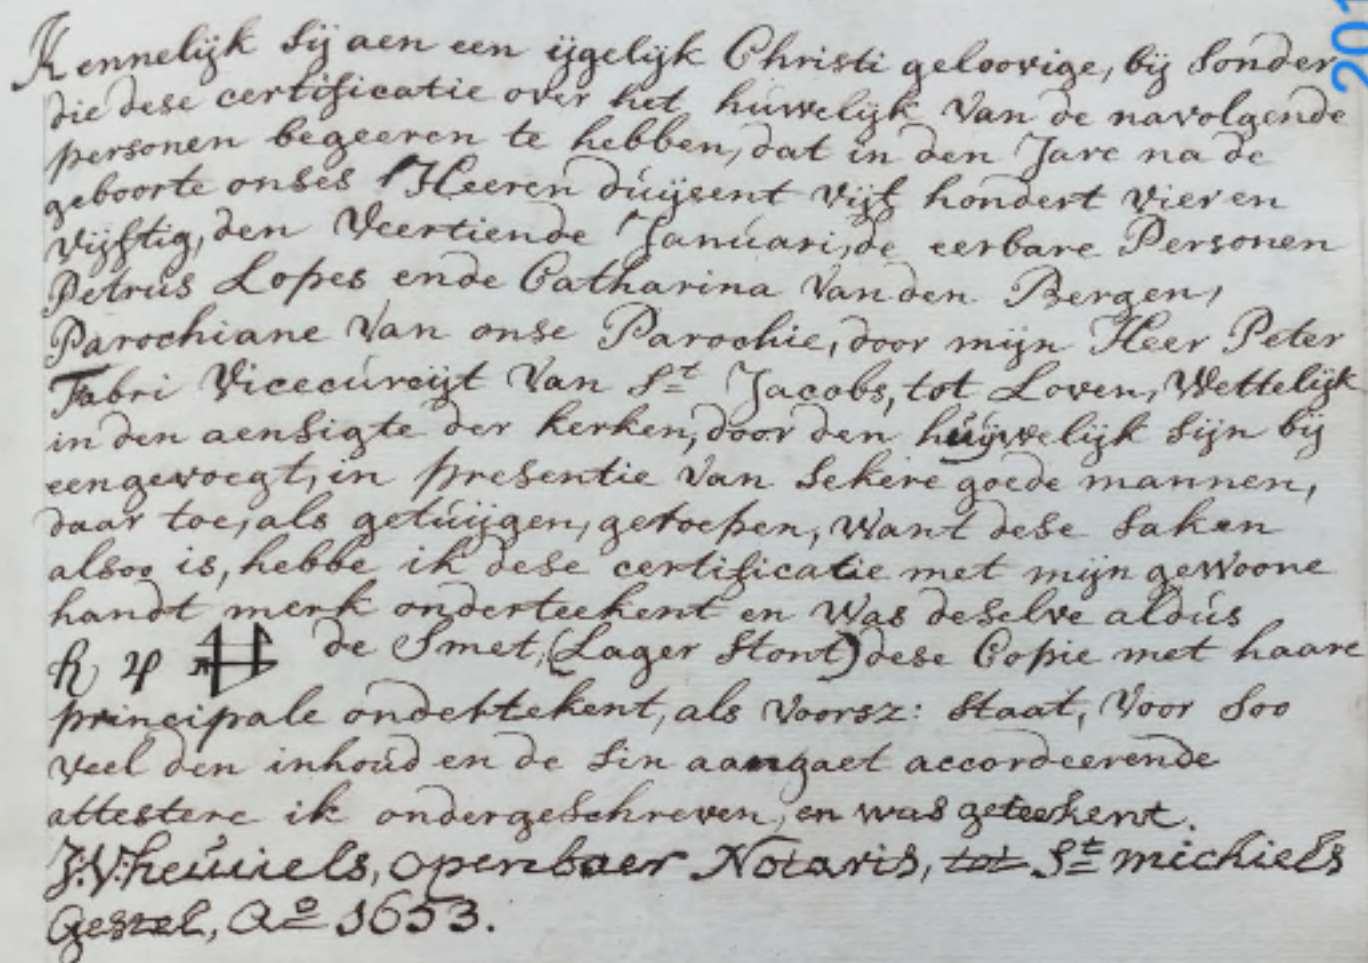 Kennelijk sij aen een ijgelijk Christi geloovige, bij sonder
die dese certificatie over het húwelijk van de navolgende
personen begeeren te hebben, dat in den Jare na de
geboorte onses Heeren dúijsent vijf hondert vier en
vijftig, den veertiende Janúari, de eerbare Personen
Petrús Lopes ende Catharina van den Bergen,
Parochiane van onse Parochie, door mijn Heer Peter
Fabri Vicecúreijt van St Jacobs, tot Loven, Wettelijk
in den aensigte der kerken, door den húijwelijk sijn bij
eengevoegt, in presentie van sekere goede mannen,
daar toe, als getúijgen, geroepen, want dese saken
alsoo is, hebbe ik dese certificatie met mijn gewoone
handt merk onderteekent en was deselve aldús
de Smet, (Lager stont) dese Copie met haare
principale ondertekent, als voorsz: staat, voor soo
veel den inhoúd en de sin aangaet accordeerende
attestere ik ondergeschreven, en was geteekent.
openbaer Notaris, tot St michiels
Gestel, Ao 1653.
201